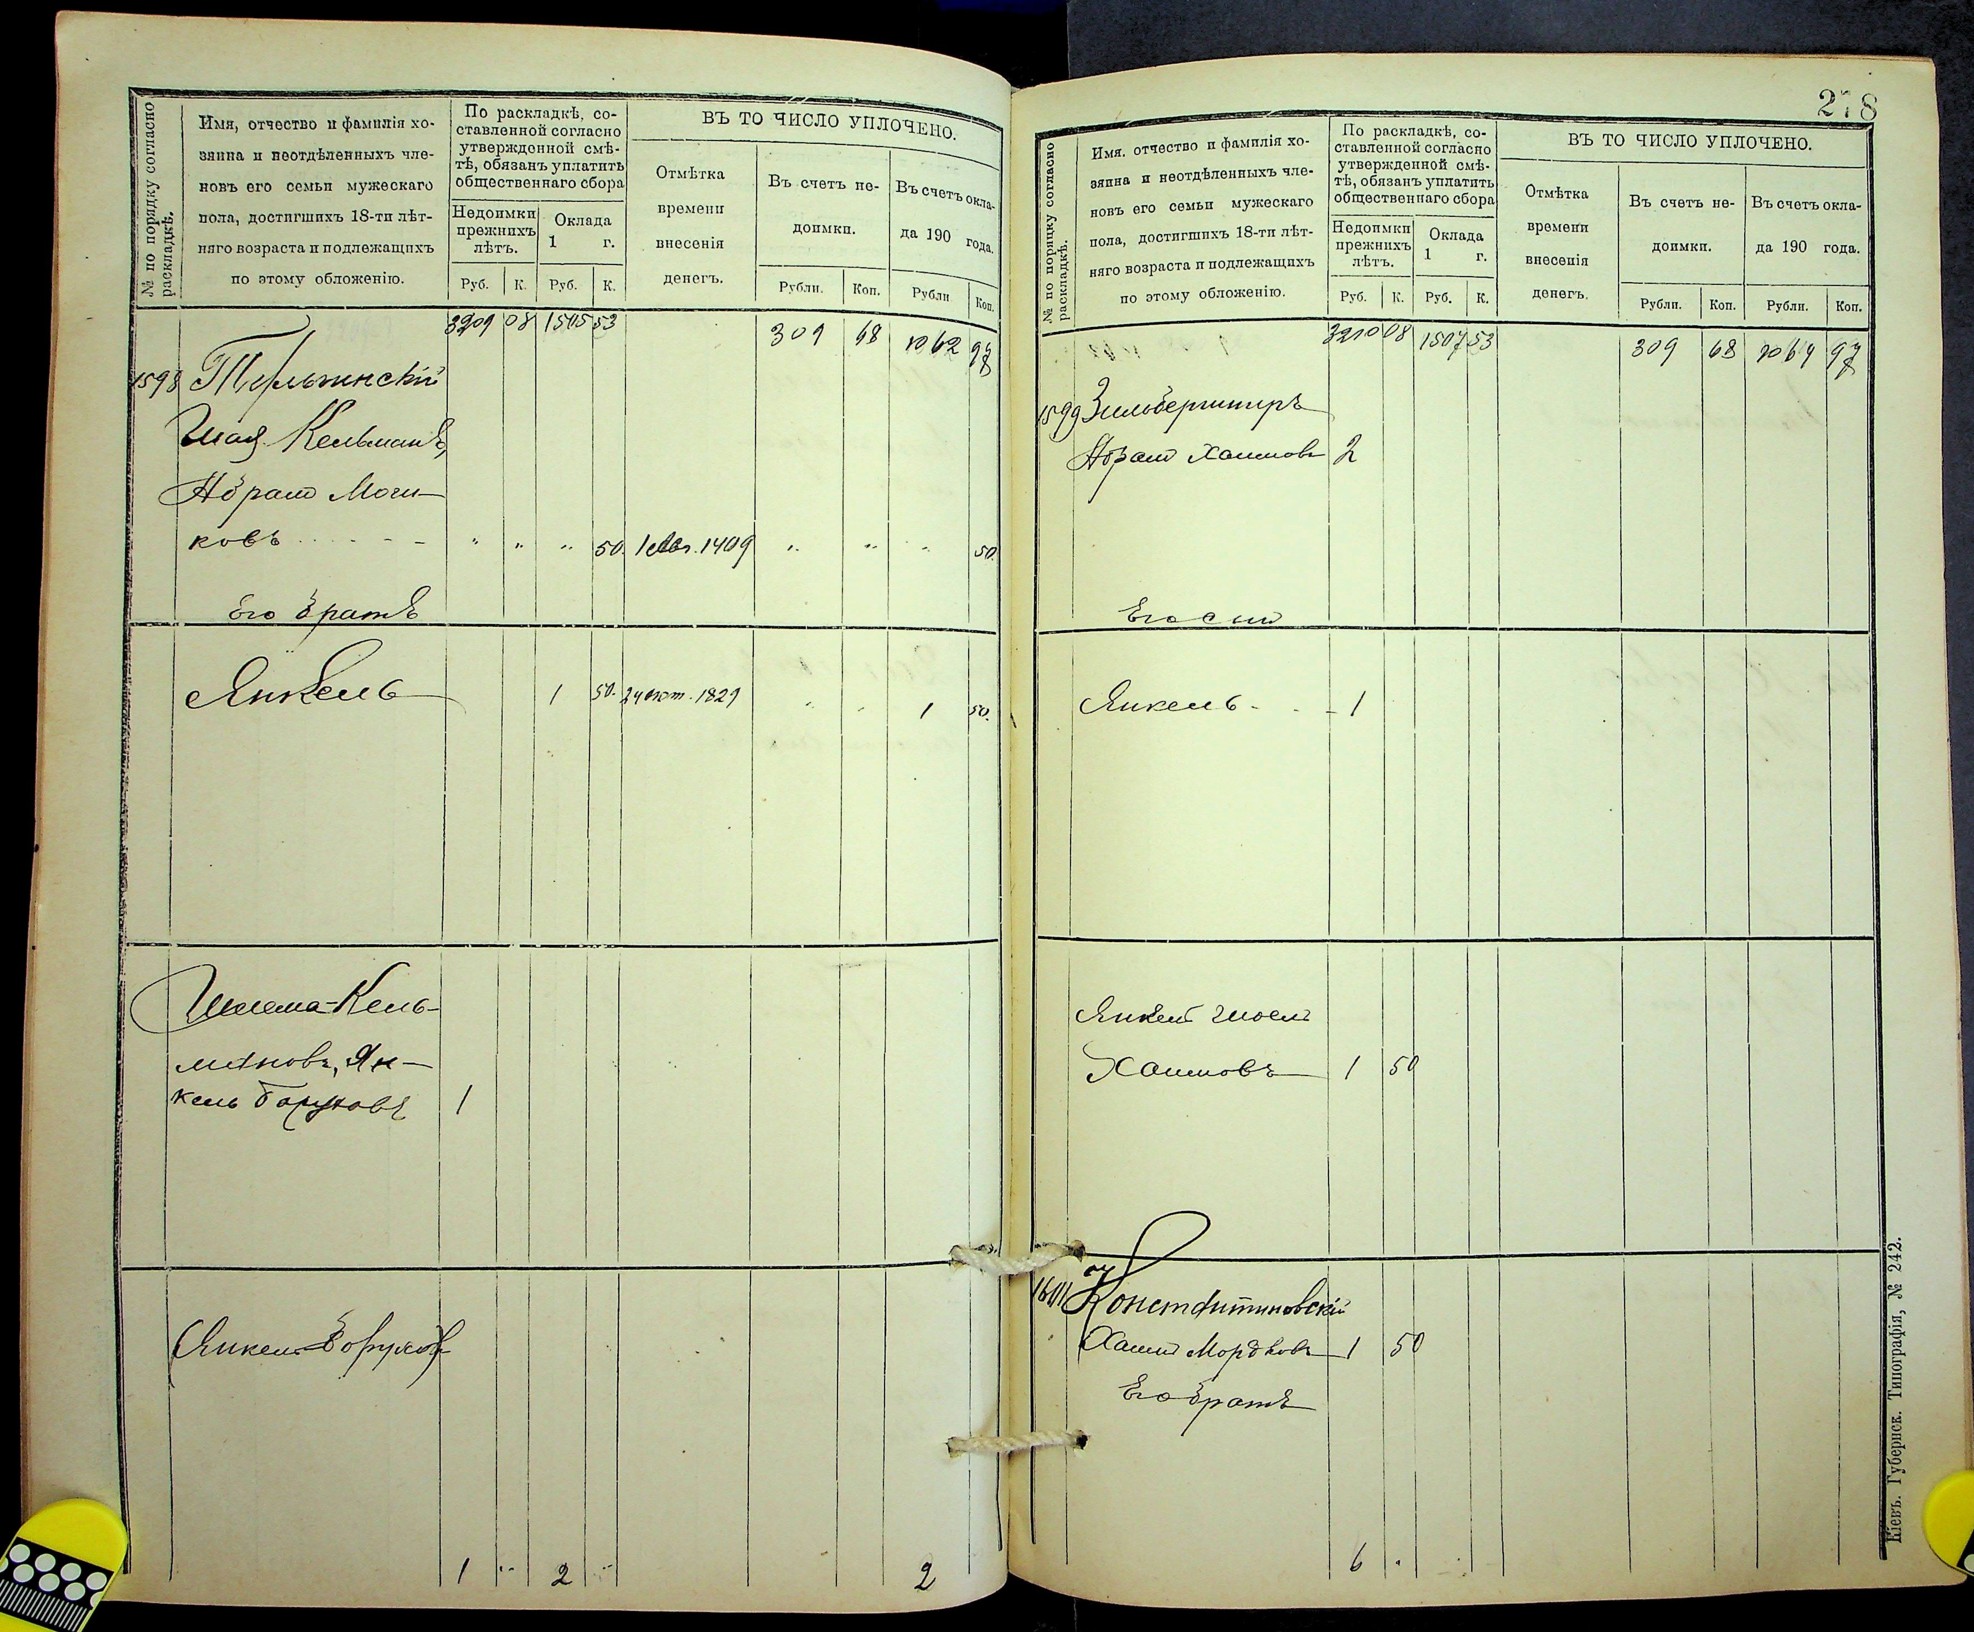 № по порядку согласно
раскладкѣ.
Имя, отчество и фамилія хо-
зяина и неотдѣленныхъ чле-
новъ его семьи мужескаго
пола, достигшихъ 18-ти лѣт-
няго возраста и подлежащихъ
по этому обложенію.
По раскладкѣ, со-
ставленной согласно
утвержденной смѣ-
тѣ, обязанъ уплатить
общественнаго сбора
Недоимки
прежнихъ
лѣтъ.
Оклада
1 г.
Руб. К. Руб. К.
ВЪ ТО ЧИСЛО УПЛОЧЕНО.
Отмѣтка
времени
внесенія
денегъ.
Въ счетъ не-
доимки.
Въ счетъ окла-
да 190 года.
Рубли. Коп. Рубли Коп.
3209 08 1505 53 309 68 1062 97
1598
Шая Кельманъ,
Абрам Моги-
ковъ " " " 50. 1409 " " " 50.
Его братъ
Янкель 1 50. 24 окт. 1829 " " 1 50.
Шлема-Кель-
мановъ, Ян-
кель Боруховъ 1
Янкель Борухов
1 " 2 " 2
278
№ по порядку согласно
раскладкѣ.
Имя, отчество и фамилія хо-
зяина и неотдѣленныхъ чле-
новъ его семьи мужескаго
пола, достигшихъ 18-ти лѣт-
няго возраста и подлежащихъ
по этому обложенію.
По раскладкѣ, со-
ставленной согласно
утвержденной смѣ-
тѣ, обязанъ уплатить
общественнаго сбора
Недоимки
прежнихъ
лѣтъ.
Оклада
1 г.
Руб. К. Руб. К.
ВЪ ТО ЧИСЛО УПЛОЧЕНО.
Отмѣтка
времени
внесенія
денегъ.
Въ счетъ не-
доимки.
Въ счетъ окла-
да 190 года.
Рубли. Коп. Рубли. Коп.
3210 08 1507 53 309 68 1064 97
1599 Зильберштиръ
Абрам Хаимовъ 2
Его сын
Янкель 1
Янкель
Хаимовъ 1 50
1601 Константиновскій
Хаим Мордковъ 1 50
Его братъ
6
Кіевъ. Губернск. Типографія, № 242.